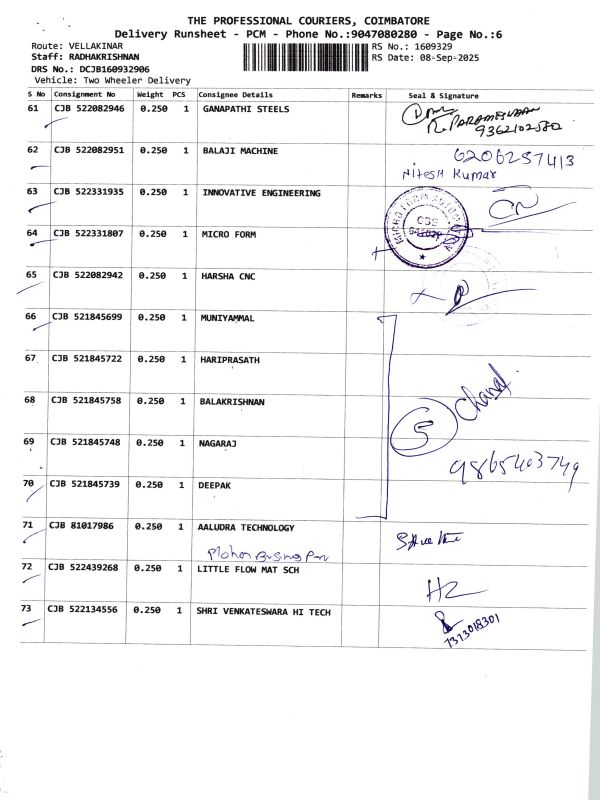 THE PROFESSIONAL COURIERS, COIMBATORE
Delivery Runsheet - PCM - Phone No.:9047080280 - Page No.:6
Route: VELLAKINAR RS No.: 1609329
Staff: RADHAKRISHNAN RS Date: 08-Sep-2025
DRS No.: DCJB160932906
Vehicle: Two Wheeler Delivery
S No Consignment No Weight PCS Consignee Details Remarks Seal & Signature
61 CJB 522082946 0.250 1 GANAPATHI STEELS
R. PARAMESWARAN
9362102580
62 CJB 522082951 0.250 1 BALAJI MACHINE 6206257413
Nitesh Kumar
63 CJB 522331935 0.250 1 INNOVATIVE ENGINEERING
64 CJB 522331807 0.250 1 MICRO FORM
65 CJB 522082942 0.250 1 HARSHA CNC
66 CJB 521845699 0.250 1 MUNIYAMMAL
67 CJB 521845722 0.250 1 HARIPRASATH
68 CJB 521845758 0.250 1 BALAKRISHNAN
5
69 CJB 521845748 0.250 1 NAGARAJ
9865403749
70 CJB 521845739 0.250 1 DEEPAK
71 CJB 81017986 0.250 1 AALUDRA TECHNOLOGY
72 CJB 522439268 0.250 1 LITTLE FLOW MAT SCH
73 CJB 522134556 0.250 1 SHRI VENKATESWARA HI TECH
7373018301